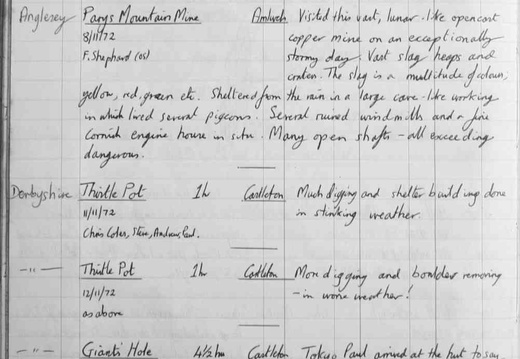 Anglesey Parys Mountain Mine Amlwch Visited this vast, lunar-like opencast
8/11/72 copper mine on an exceptionally
F. Shephard (os) stormy day. Vast slag heaps and
craters. The slag is a multitude of colours;
yellow, red, green etc. Sheltered from the rain in a large cave-like working
in which lived several pigeons. Several ruined windmills and a fine
Cornish engine house in situ. Many open shafts - all exceeding
dangerous.
Derbyshire Thistle Pot 1h Castleton Much digging and shelter building done
11/11/72 in stinking weather.
Chris Coles, Steve, Andrew, Paul.
-"- Thistle Pot 1h Castleton More digging and boulder removing
12/11/72 - in worse weather!
as above
-"- Giants Hole 4½ hrs Castleton Paul arrived at the hut to say